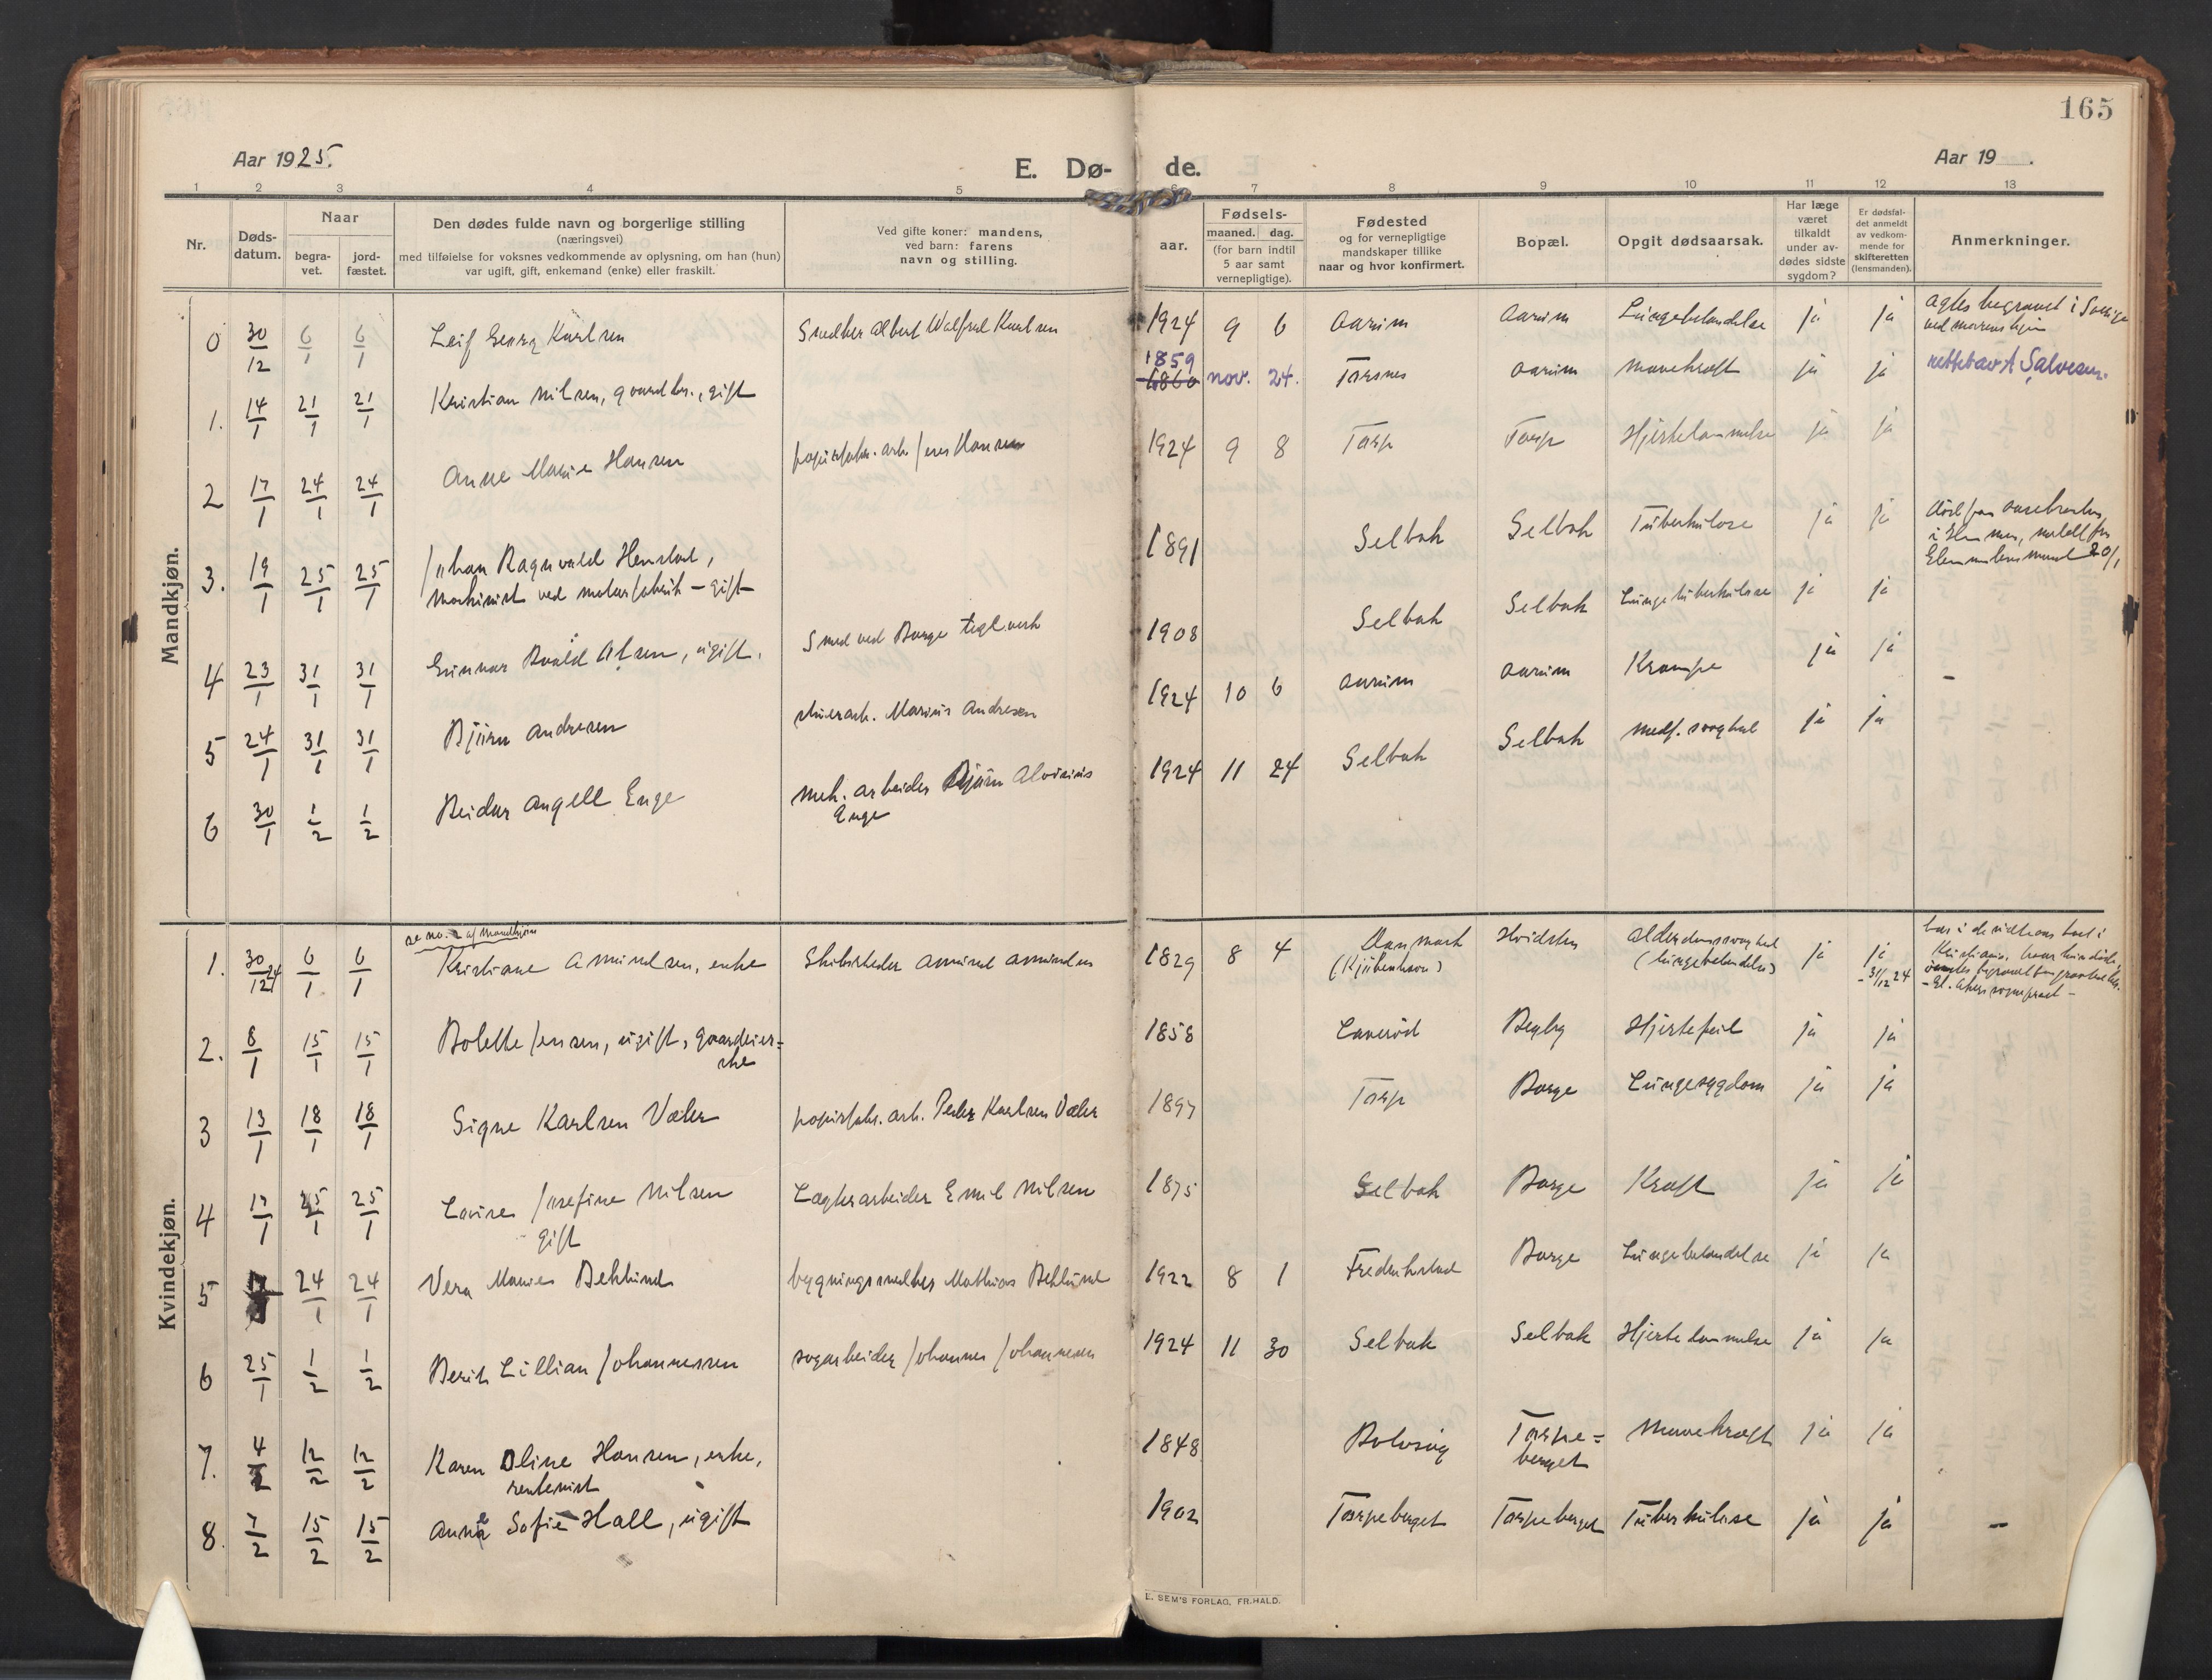 165
Aar 1925.
E. Dø- de.
Aar 19 .
1 2 3 4 5 6 7 8 9 10 11 12 13
Nr.
Døds-
datum.
Naar
begra-
vet.
jord-
fæstet.
Den dødes fulde navn og borgerlige stilling
(næringsvei)
med tilføielse for voksnes vedkommende av oplysning, om han (hun)
var ugift, gift, enkemand (enke) eller fraskilt.
Ved gifte koner: mandens,
ved barn: farens
navn og stilling.
aar.
Fødsels-
maaned. dag.
(for barn indtil
5 aar samt
vernepligtige).
Fødested
og for vernepligtige
mandskaper tillike
naar og hvor konfirmert.
Bopæl.
Opgit dødsaarsak.
Har læge
været
tilkaldt
under av-
dødes sidste
sygdom?
Er dødsfal-
det anmeldt
av vedkom-
mende for
skifteretten
(lensmanden).
Anmerkninger.
Mandkjøn.
0 30/12 6/1 6/1 Leif Georg Karlsen Snedker Albert Walfred Karlsen 1924 9 6 Aarum Aarum Lungebetændelse ja ja agtes begravet i Sverige
ved morens hjem
1. 14/1 21/1 21/1 Kristian Nilsen, gaardbr., gift 1859 1860 nov. 24. Torsnes Aarum Mavekræft ja ja rettet av A Salvesen.
2 17/1 24/1 24/1 Anne Marie Hansen papirfabr. arb. Jens Hansen 1924 9 8 Torp Torp Hjertelammelse ja ja
3. 19/1 25/1 25/1 Johan Ragnvald Henstad,
maskinist ved motorfabrik - gift 1891 Selbak Selbak Tuberkulose ja ja
20/1
4 23/1 31/1 31/1 Gunnar Roald Olsen, ugift. Smed ved Borge teglverk 1908 Selbak Selbak Lungetuberkulose ja ja
5 24/1 31/1 31/1 Bjürn Andresen Marius Andresen 1924 10 6 Aarum Aarum Krampe ja ja -
6 30/1 1/2 1/2 Reidar Angell Enge mek. arbeider Bjürn Aloisius
Enge 1924 11 24 Selbak Selbak medf. svaghet ja ja
Kvindekjøn.
se no. 2 af Mandkjøn
1. 30/12 24 6/1 6/1 Kristiane Amundsen, enke Skibsreder Amund Amundsen 1829 8 4 Danmark
(Kjübenhavn) Hvidsten alderdomssvaghet
(Lungebetændelse) ja ja
- 31/12 24
Kristiania, hvor hun døde,
2. 8/1 15/1 15/1 Bolette Jensen, ugift, gaardeier=
ske 1858 Lauerød Begby Hjertefeil ja ja
3 13/1 18/1 18/1 Signe Karlsen Væler papirfabr. arb. Peder Karlsen Væler 1897 Torp Borge Lungesygdom ja ja
4 17/1 25/1 25/1 Lovise Josefine Nilsen
gift Lagterarbeider Emil Nilsen 1875 Selbak Borge Kræft ja ja
5 24/1 24/1 Vera Marie Beklund bygningssnedker Mathias Beklund 1922 8 1 Fredrikstad Borge Lungebetændelse ja ja
6 25/1 1/2 1/2 Berit Lillian Johannessen sagarbeider Johannes Johannessen 1924 11 30 Selbak Selbak Hjertelammelse ja ja
7. 4/2 12/2 12/2 Karen Oline Hansen, enke,
rentenist 1848 Rolvsøy Torpe=
berget Mavekræft ja ja
8. 7/2 15/2 15/2 Anna Sofie Hall, ugift 1902 Torpeberget Torpeberget Tuberkulose ja ja -
E. SEM'S FORLAG, FR.HALD.